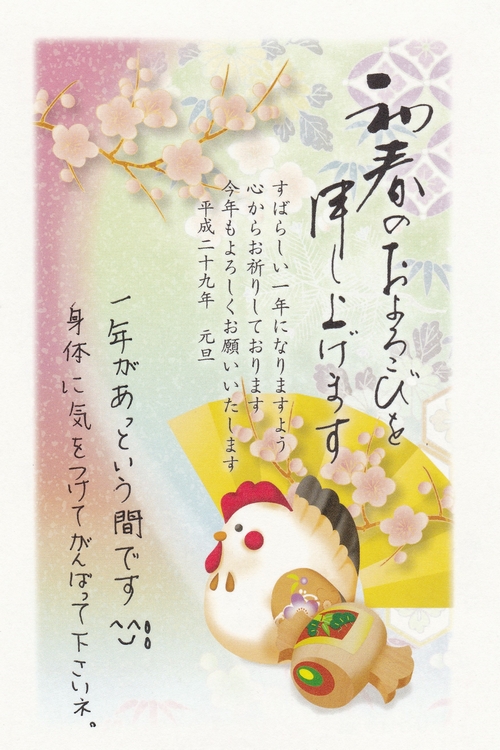 初春のおよろこびを
申し上げます
すばらしい一年になりますよう
心からお祈りしております
今年もよろしくお願いいたします
平成二十九年 元旦
一年があっという間です^^
身体に気をつけてがんばって下さいネ。